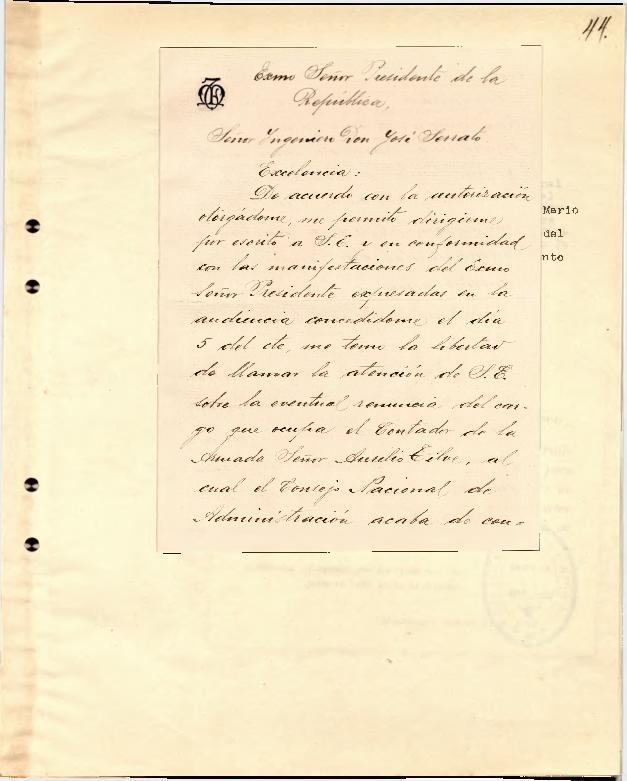 44.
Exmo Señor Presidente de la
República,
Señor Ingeniero Don José Serrato
Excelencia:
De acuerdo con la autorización
otorgádome, me permito dirigirme
por escrito a S.E. y en conformidad
con las manifestaciones del Exmo
Señor Presidente expresadas en la
audiencia concedidome el día
5 del cte, me tomo la libertad
de llamar la atención de S.E.
sobre la eventual renuncia del car-
go que ocupa el Contador de la
Armada Señor Aurelio
, al
cual el Consejo Nacional de
Administración acaba de con=
Mario
del
nto